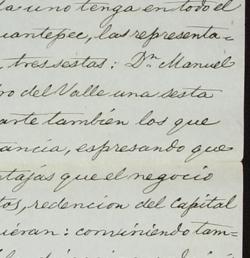 a uno tenga en todo el
uantepec, las representa=
tres sestas: Dn. Manuel
ro del Valle una sesta
arte también los que
ancia, espresando que
ntajas que el negocio
tos, redencion del Capital
ueran: conviniendo tam=